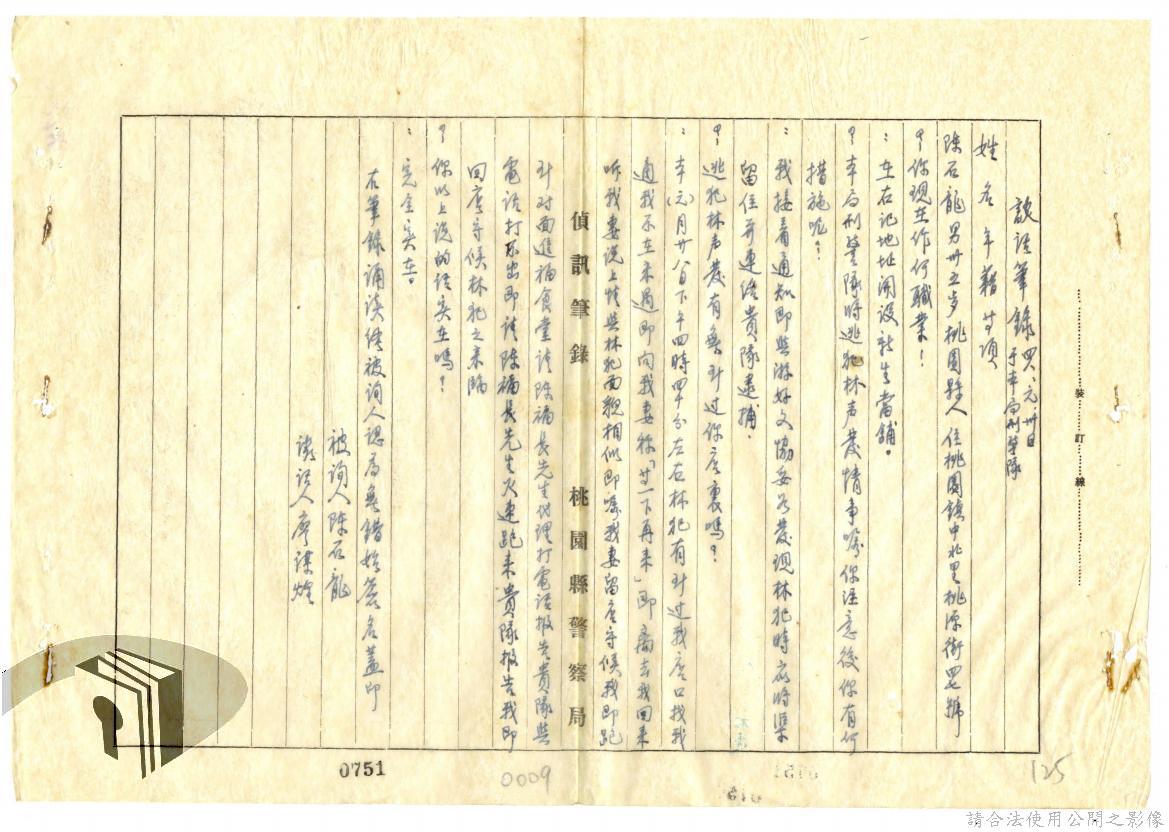 談話筆錄 四八、元、卅日
于本局刑警隊
姓名年籍等項
陳石龍男卅五岁桃園縣人住桃園鎮中北里桃源街四七號
？你現在作何職業！
：在右記地址開設新生當舖。
？本局刑警隊將逃犯林声發情事囑你注意後你有何
措施呢？
：我接着通知即與游好文協妥如發現林犯時應將渠
留住并連絡貴隊逮捕．
？逃犯林声發有無到过你店裏嗎？
：本(元)月廿八日下午四時四十分左右林犯有到过我店口找我
適我不在未遇即向我妻称「廿一下再来」即离去我回来
听我妻说上情與林犯面貌相似即囑我妻留店守候我即跑
到对面進福食堂請陳福長先生代理打電话报告貴隊與
電话打不出即請陳福長先生火速跑来貴隊报告我即
回店守候林犯之来臨
？你以上说的话实在嗎？
：完全实在。
右筆錄誦读經被詢人認為無錯始簽名蓋印
被詢人陳石龍
訊记人廖
偵訊筆錄 桃園縣警察局
裝訂線
0751
0009
125
請合法使用公開之影像